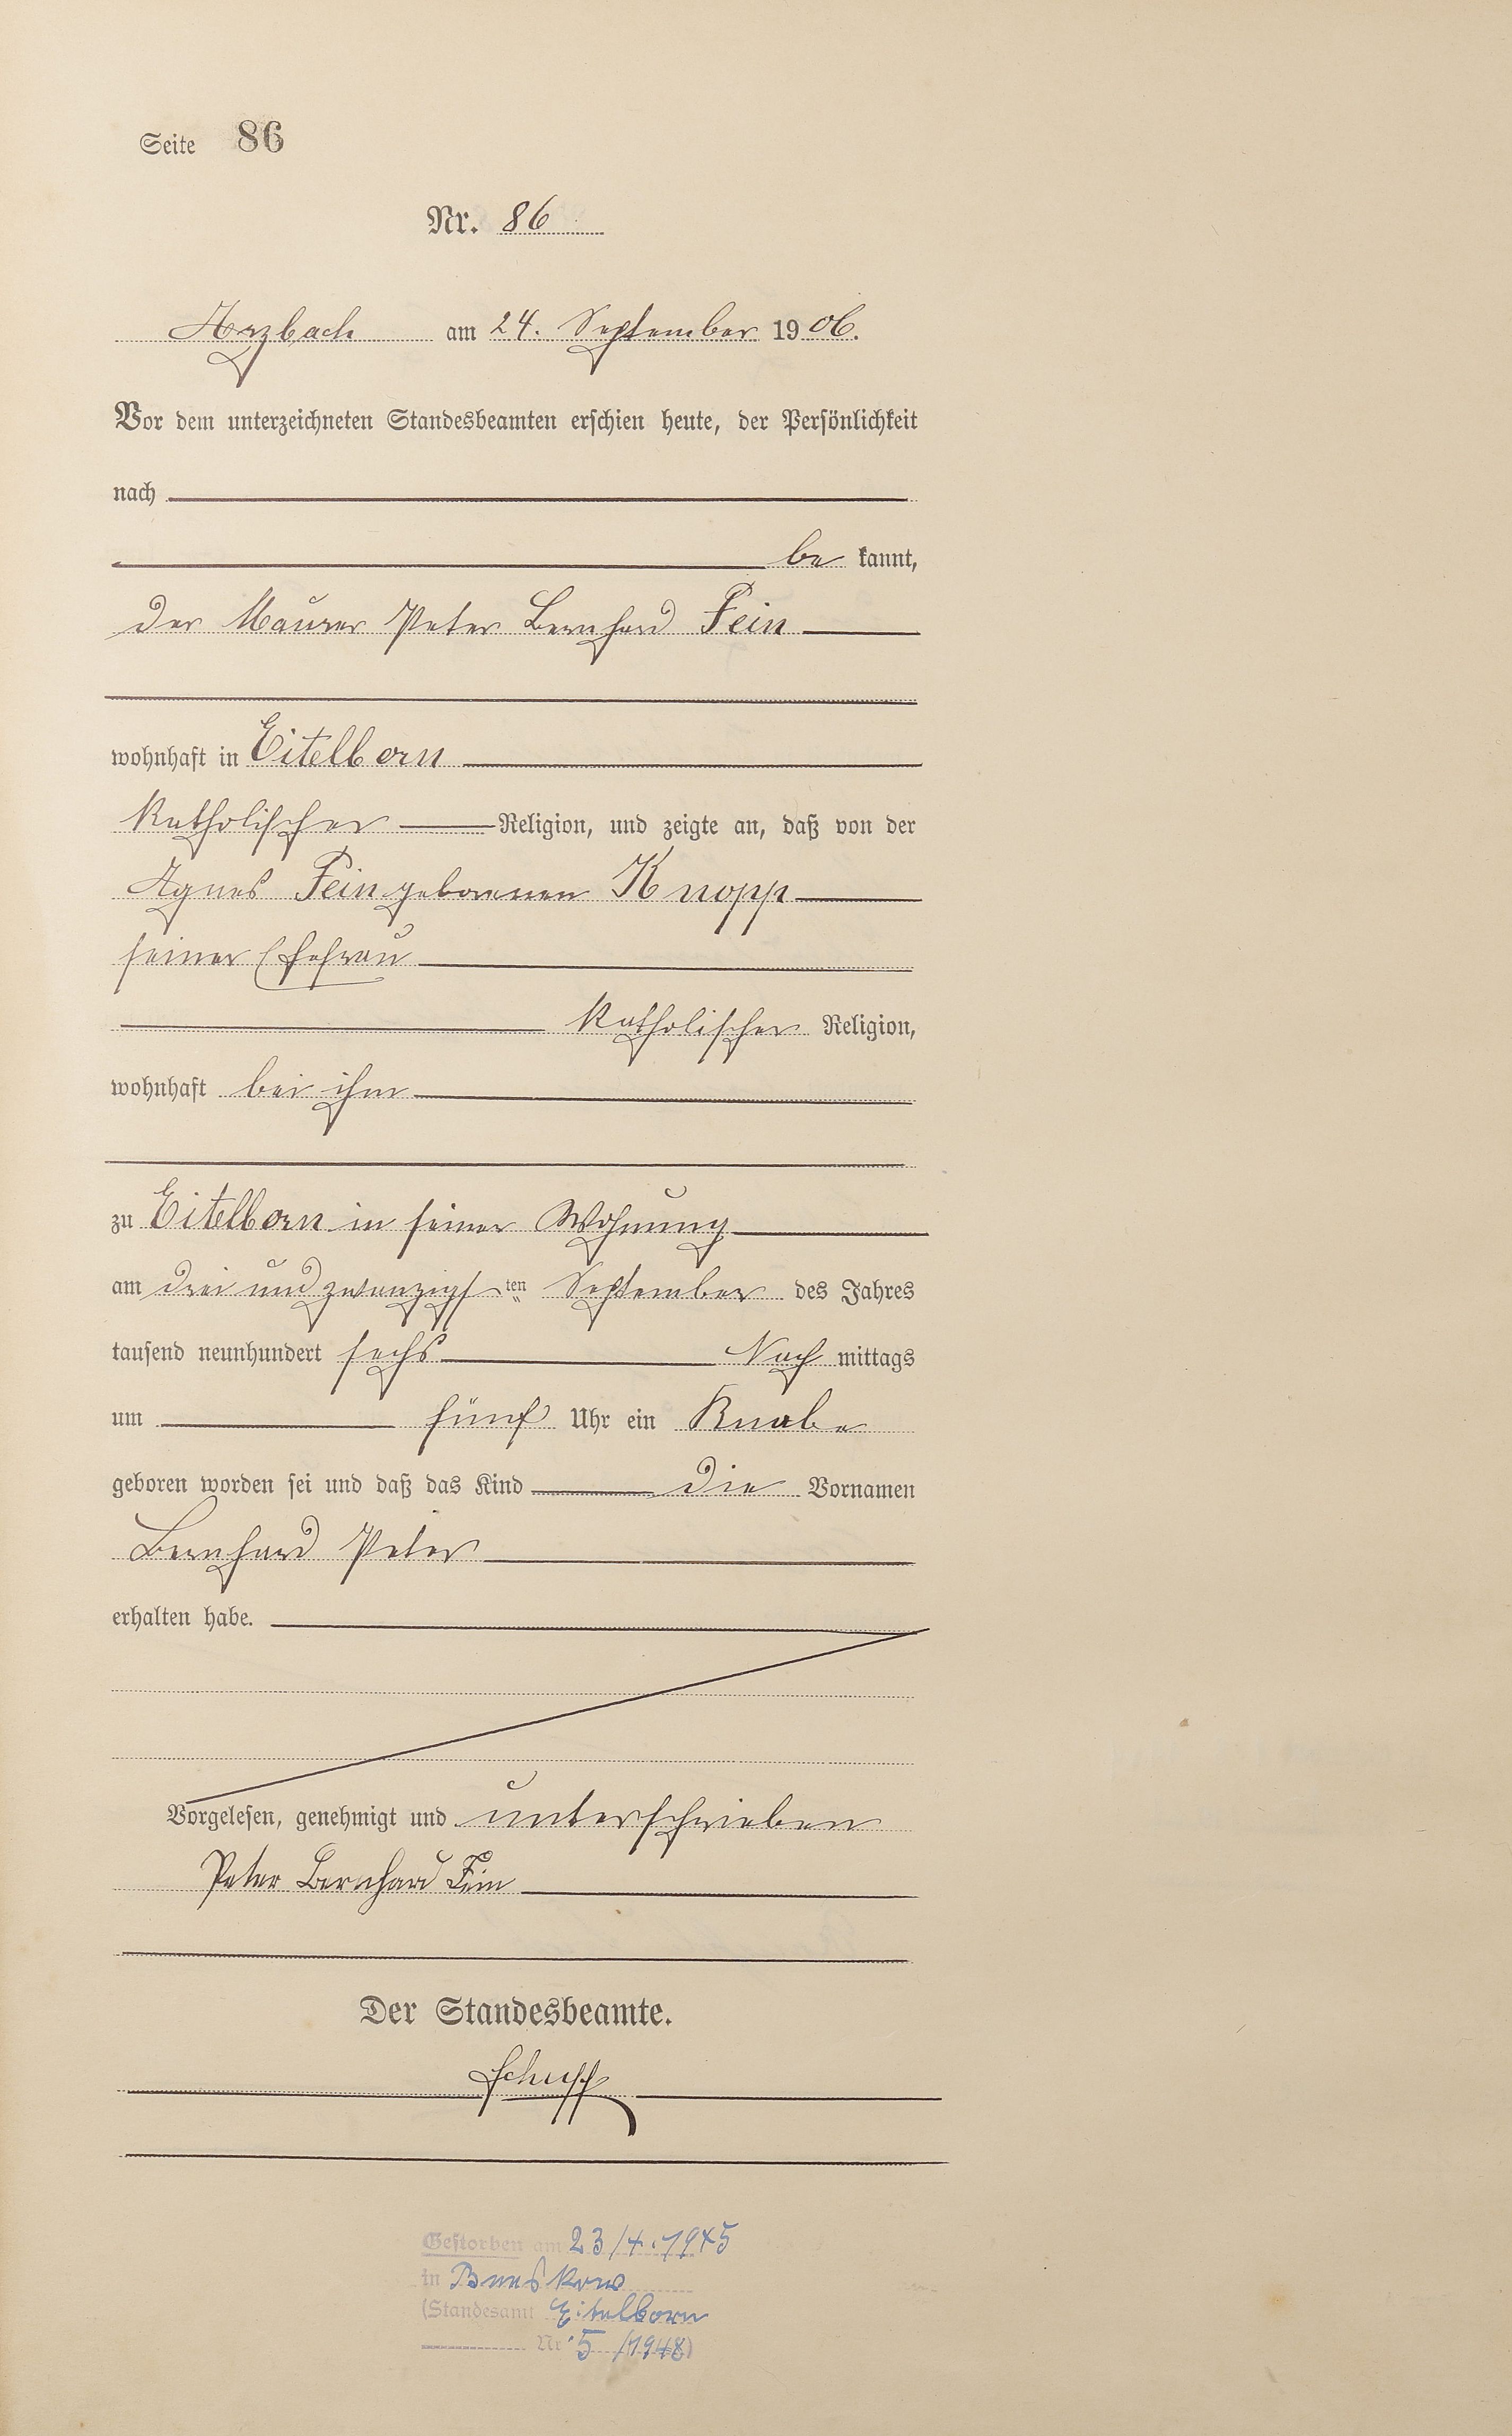 Seite 86
Nr. 86
Arzbach am 24. September 1906.
Vor dem unterzeichneten Standesbeamten erschien heute, der Persönlichkeit
nach
be kannt,
der Maurer Peter Bernhard Fein
wohnhaft in Eitelborn
katholischer Religion, und zeigte an, daß von der
Agnes Fein geborenen Knopp
seiner Ehefrau
katholischer Religion,
wohnhaft bei ihm
zu Eitelborn in seiner Wohnung
am drei und zwanzigsten September des Jahres
tausend neunhundert sechs Nach mittags
um fünf Uhr ein Knabe
geboren worden sei und daß das Kind die Vornamen
Bernhard Peter
erhalten habe.
Vorgelesen, genehmigt und unterschrieben
Peter Bernhard Fein
Der Standesbeamte.
Schupp
Gestorben am 23/4.1945
in
(Standesamt Eitelborn
Nr. 5 /1948)